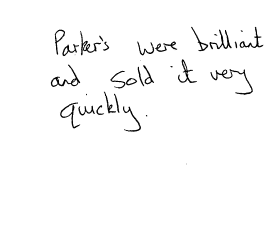 Parker's were brilliant
and sold it very
quickly.